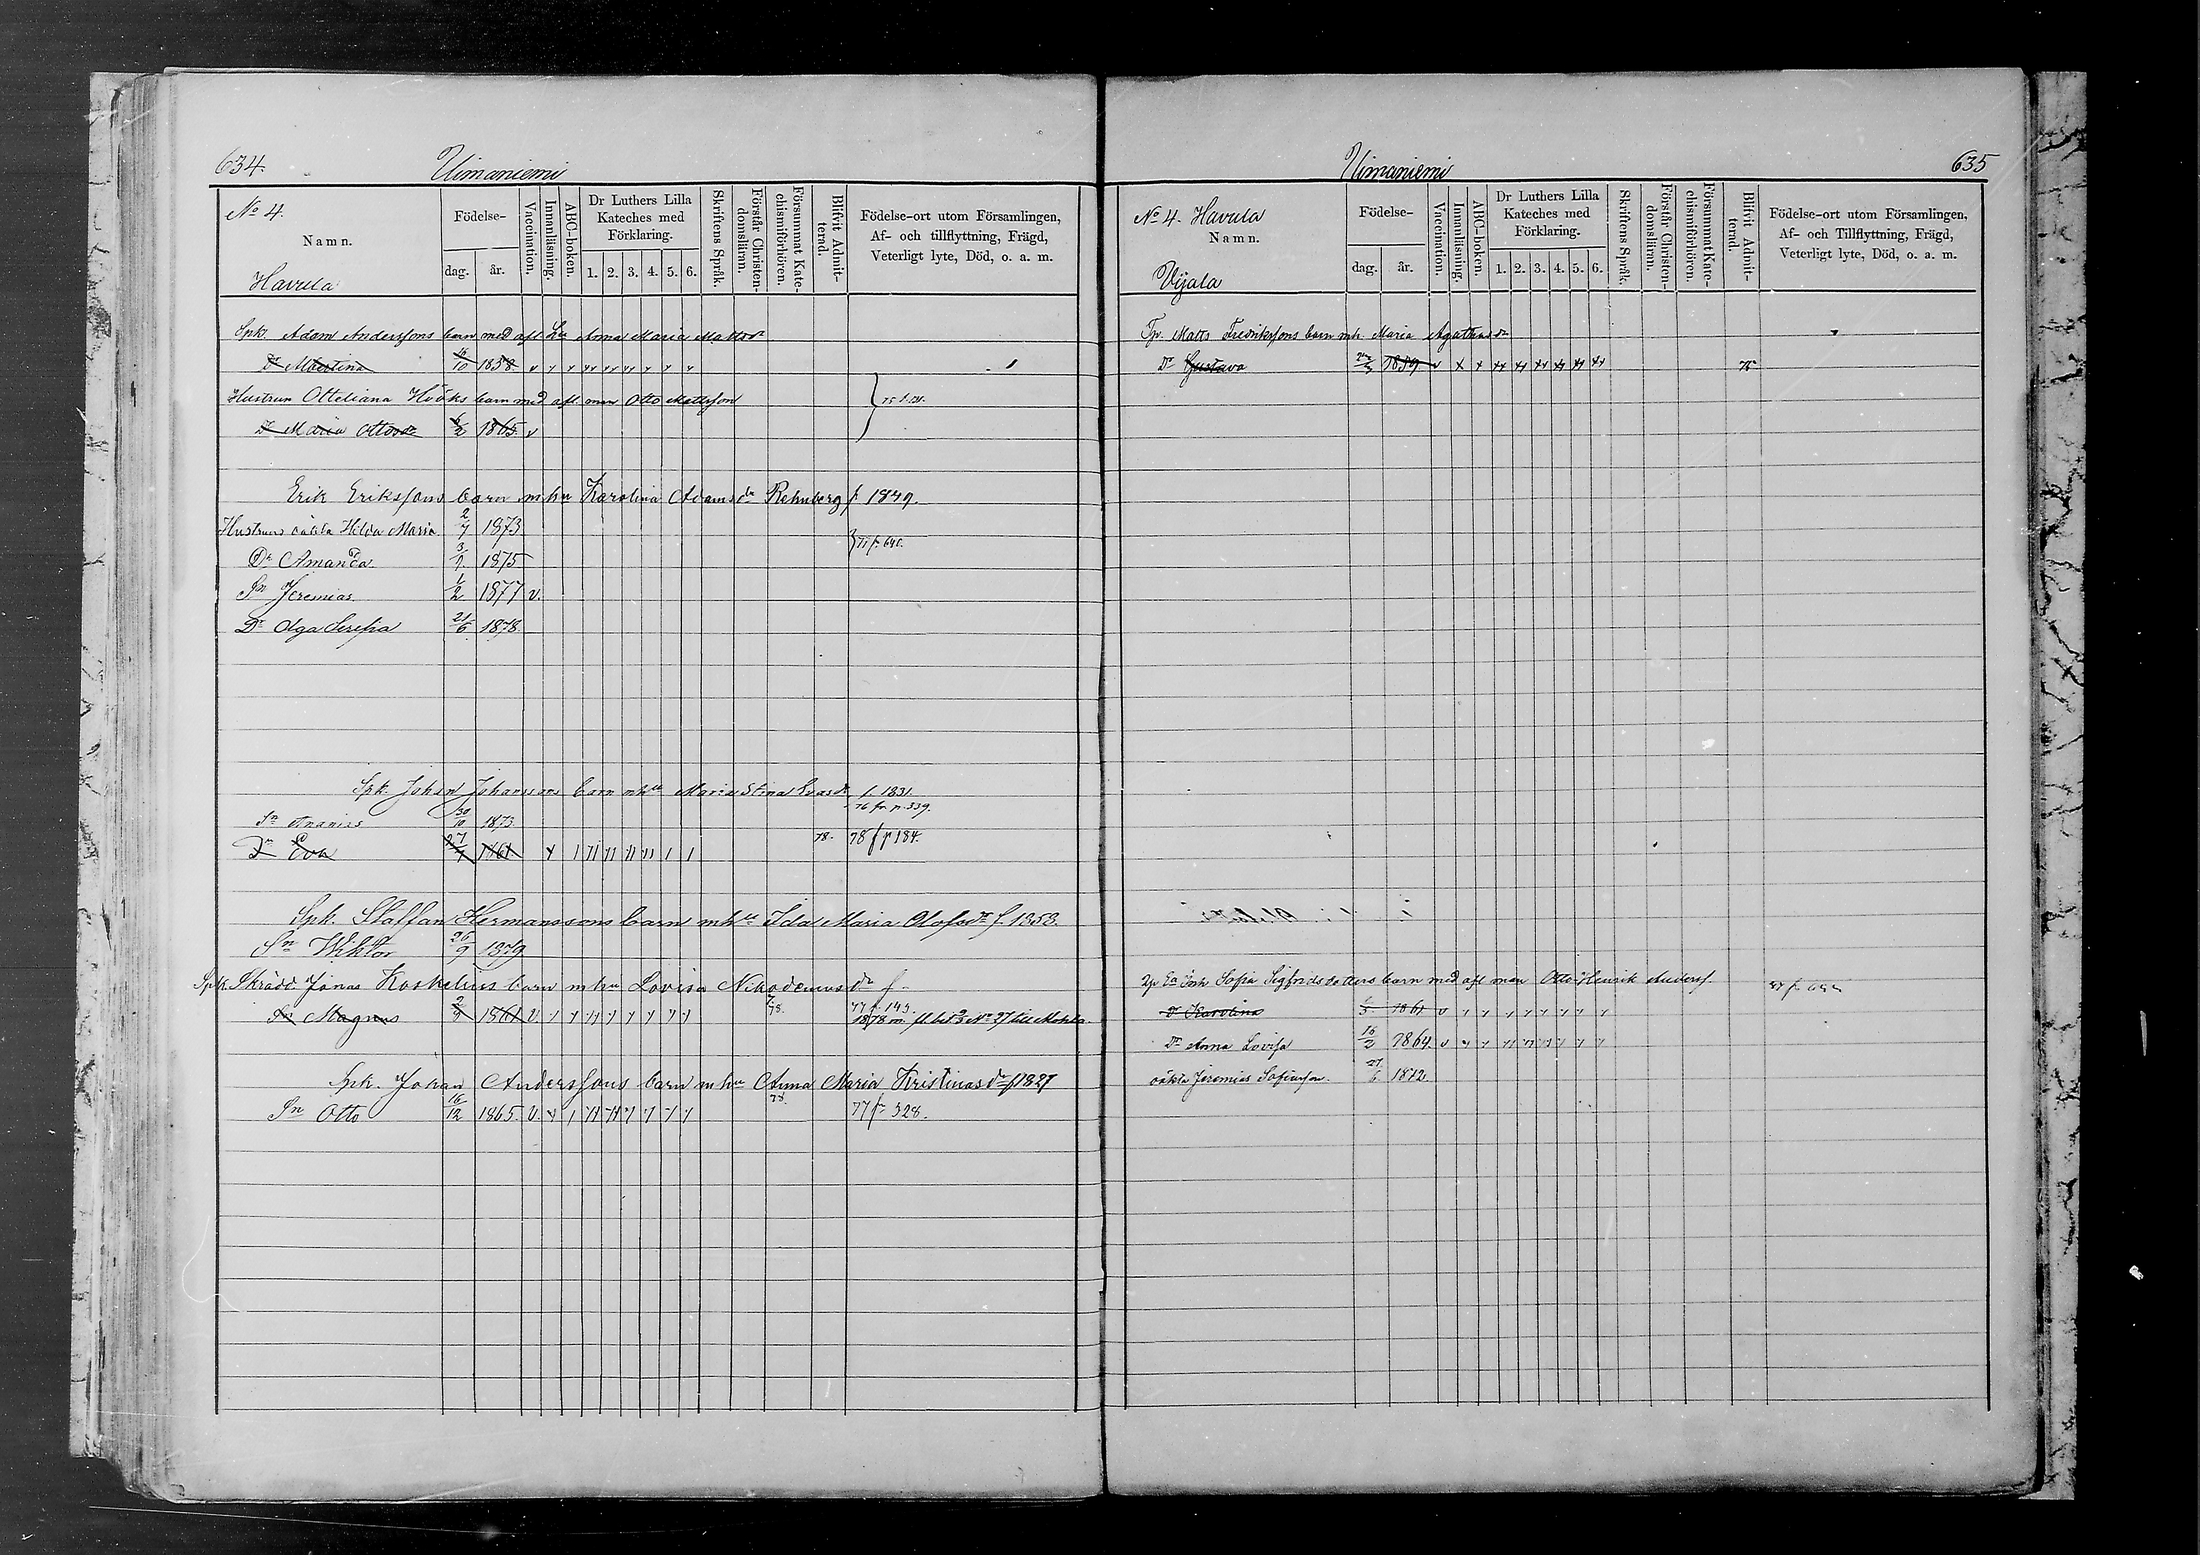 634.
Uimaniemi
No 4.
Namn.
Havula
Födelse-
dag.
år.
Vaccination.
Innanläsning.
ABC-boken.
Dr Luthers Lilla
Kateches med
Förklaring.
1. 2. 3. 4. 5. 6.
Skriftens Språk.
Förstår Christen-
domsläran.
Försummat Kate-
chismiförhören.
Blifvit Admit-
terad.
Födelse-ort utom Församlingen,
Af- och tillflyttning, Frägd,
Veterligt lyte, Död, o. a. m.
Spk. Adam Anderssons barn med afl. Maria Mattsdr
Dr Martina 16/10 1858. v
Hustrun Otteliana Hööks barn med afl. man Otto Mattsson
Dr Maria Ottosdr 6/2 1865. v
Erik Erikssons barn m hu Karolina Adamsdr Rehnberg f. 1849.
Hustruns oäkta Hilda Maria 2/7 1873
Dr Amanda 3/7. 1875
Sn Jeremias. 1/2 1877 v.
Dr Olga Serefia 21/6 1878.
Spk. Johan Johanssons barn m hu Maria Stina Evasdr f. 1831.
76 fr p. 339.
Sn Ananias 30/10 1873
Dr Eva 27/7 1861. 78. 78 f p 184.
Spk. Staffan Hermanssons barn m hu Ida Maria Olofsdr f. 1853.
Sn Wiktor 26/9 1879
Spk. Skrädd. Jonas Koskelius barn m hu Lovisa Nikodemusdr f.
77 f. 143.
Sn Magnus 2/9 1861 v.
Spk. Johan Anderssons barn m hu Anna Maria Kristinasdr f 1827
78.
Sn Otto 16/12 1865. v. 77 fr 528.
Uimaniemi
635
No 4. Havula
Namn.
Födelse-
dag.
år.
Vaccination.
Innanläsning.
ABC-boken.
Dr Luthers Lilla
Kateches med
Förklaring.
1. 2. 3. 4. 5. 6.
Skriftens Språk.
Förstår Christen-
domsläran.
Försummat Kate-
chismiförhören.
Blifvit Admit-
terad.
Födelse-ort utom Församlingen,
Af- och Tillflyttning, Frägd,
Veterligt lyte, Död, o. a. m.
Matts Fredrikssons barn m h. Maria Agathasdr
Dr Gustava 1859. v
Sofia Sigfridsdotters barn med afl man Otto Henrik Anderss.
Dr Karolina 1861 v
Dr Anna Lovisa 16/2 1864. v
oäkta Jeremias Sofiasson. 27/6 1872.